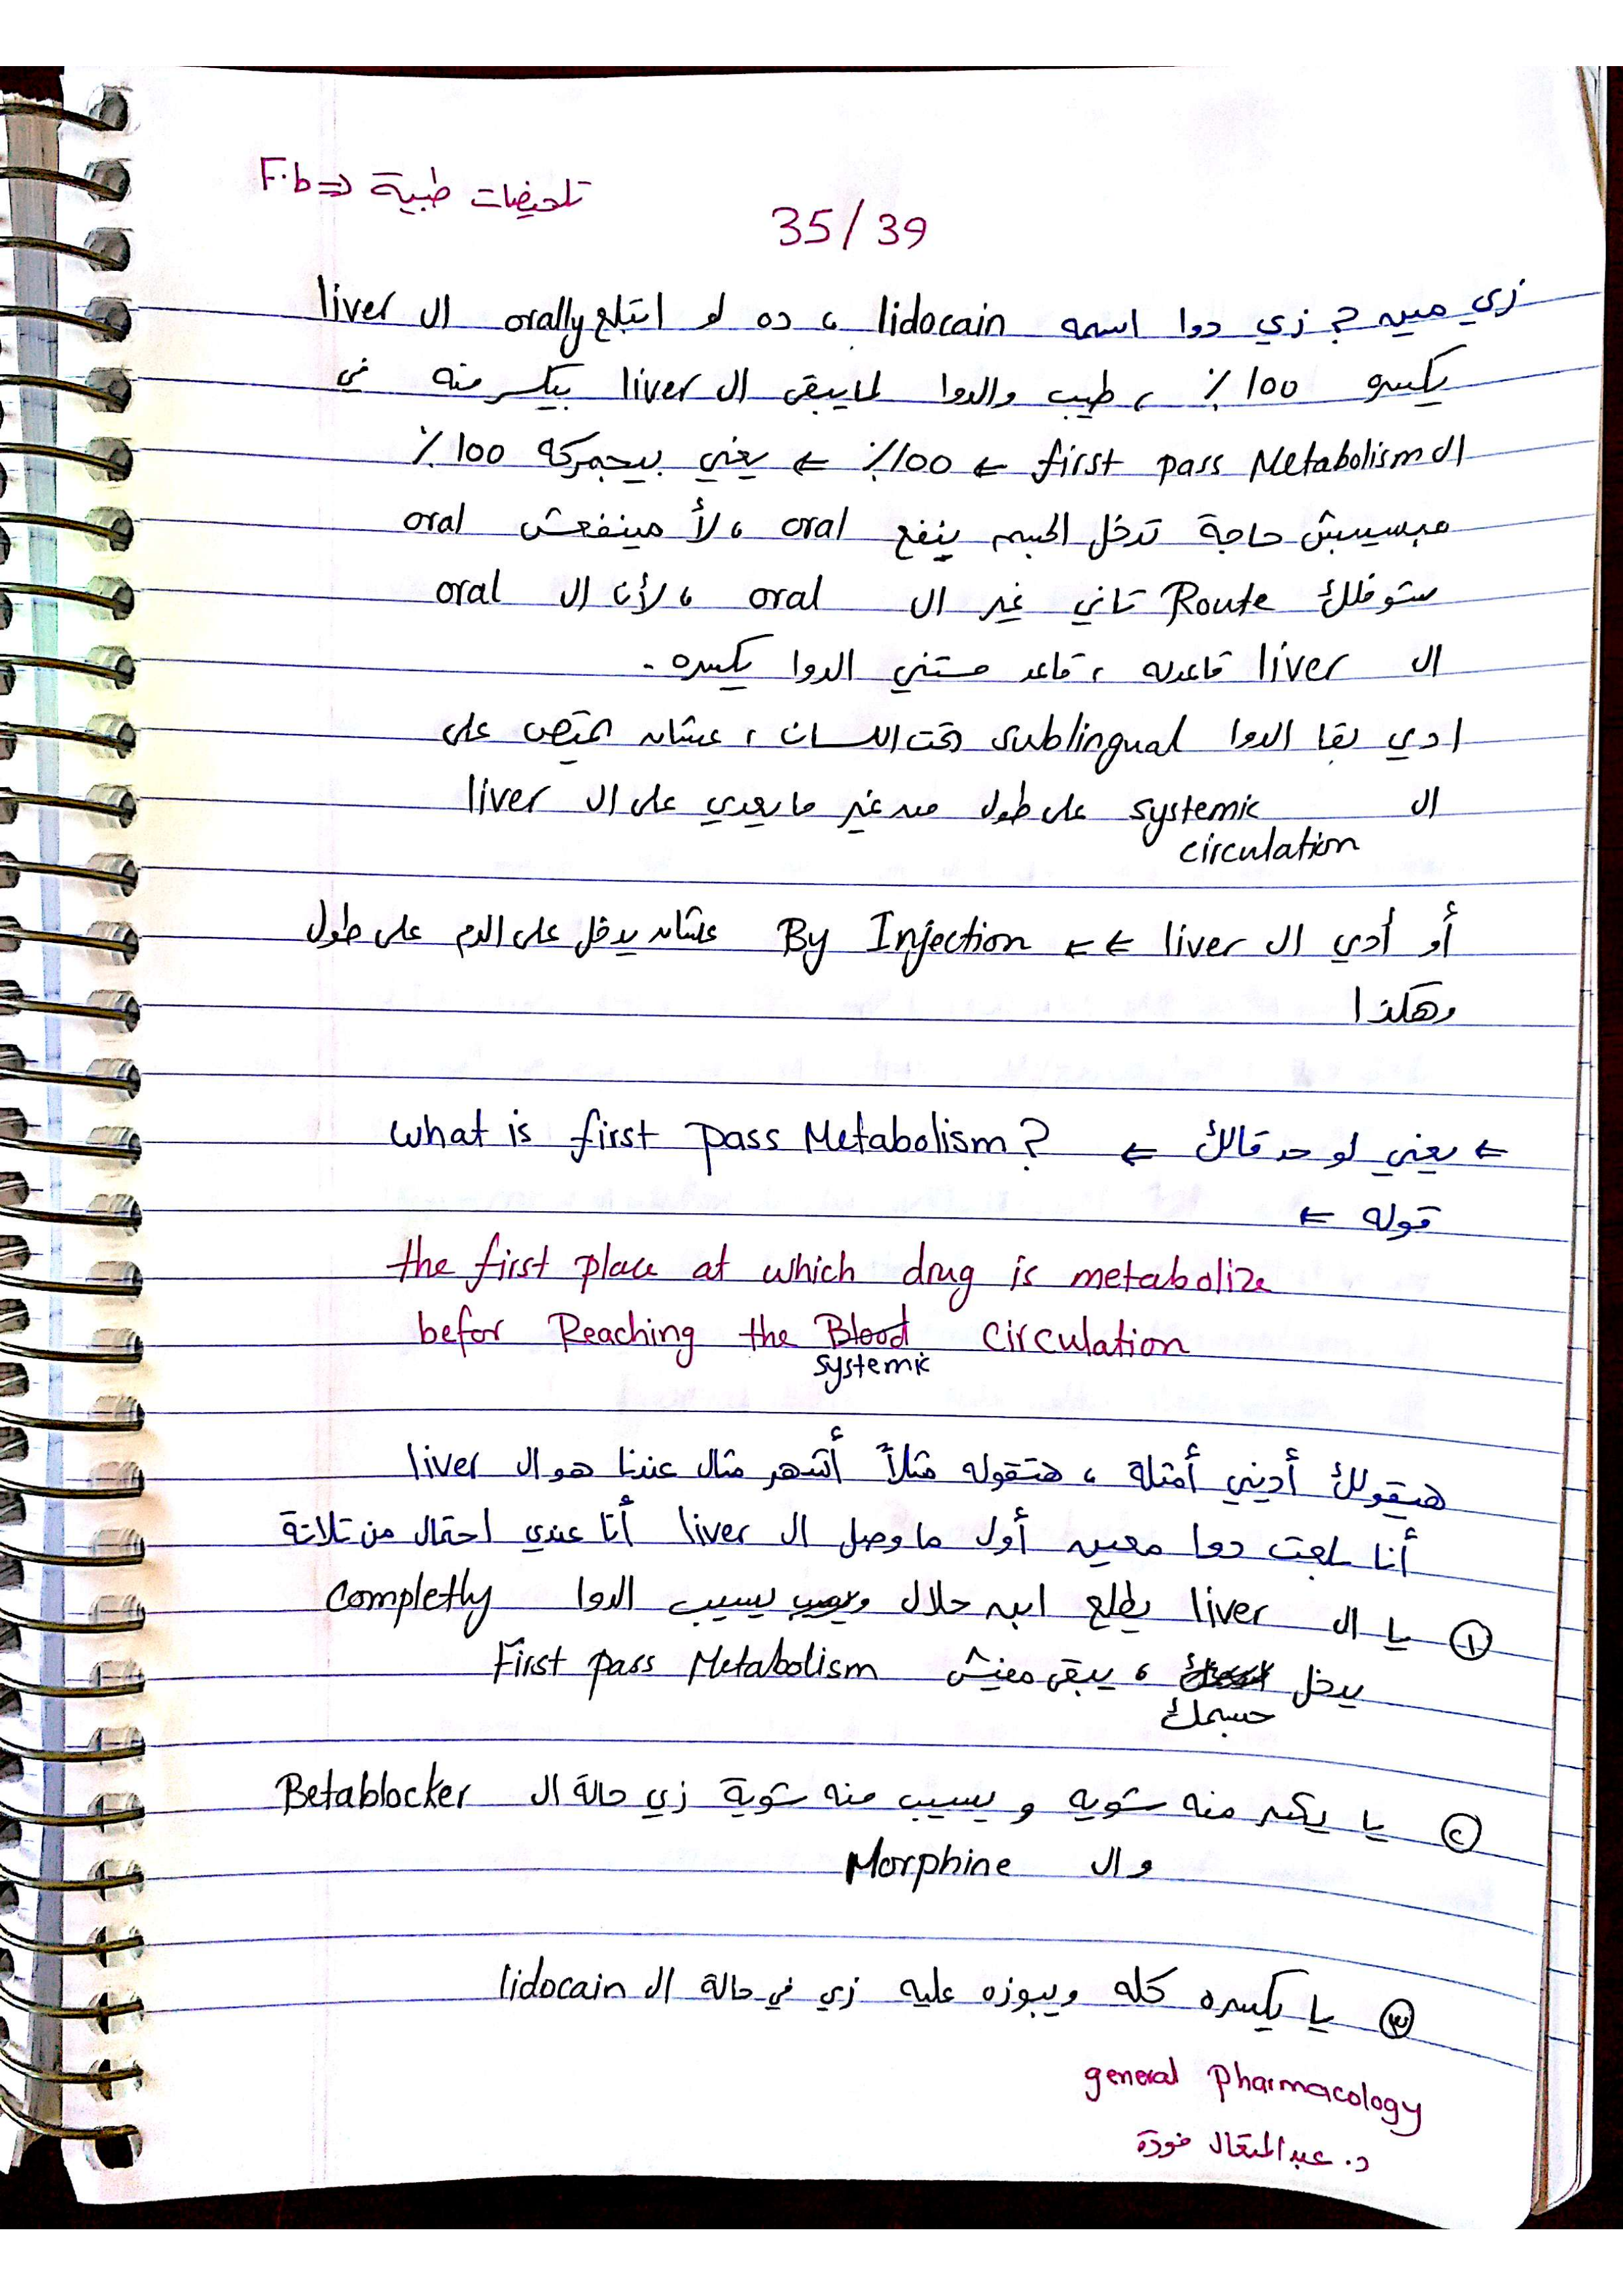 F.b ⇒ تلخيصات طبية
35/39
زي مين؟ زي دوا اسمه lidocain ، ده لو اتبلع orally ال liver
يكسره 100 ٪ ، طيب والدوا لما يبقى ال liver بيكسر منه في
ال first pass Metabolism ← 100٪ ← يعني بيجمركه 100 ٪
مبيسيبش حاجة تدخل الجسم ينفع oral ، لأ مينفعش oral
ستوفلك Route تاني غير ال oral ، لأن ال oral
ال liver قاعدله ، قاعد مستني الدوا يكسره .
ادي بقا الدوا sublingual تحت اللسان ، عشان يمتص على
ال systemic على طول من غير ما يعدي على ال liver
circulation
أو أدي ال liver ← ← By Injection عشان يدخل على الدم على طول
وهكذا
← يعني لو حد قالك ← what is first pass Metabolism?
قوله ←
the first place at which drug is metabolize
befor Reaching the Blood circulation
systemic
هيقولك أديني أمثلة ، هتقوله مثلاً أشهر مثال عندنا هو ال liver
أنا بلعت دوا معين أول ما وصل ال liver أنا عندي احتمال من تلاتة
① يا ال liver يطلع ابن حلال ويسيب الدوا completly
يدخل ، يبقى مفيش First pass Metabolism
جسمك
② يا يكسر منه شويه و يسيب منه شوية زي حالة ال Betablocker
وال Morphine
③ يا يكسره كله ويبوزه عليه زي في حالة ال lidocain
general pharmacology
د. عبدالمتعال فودة